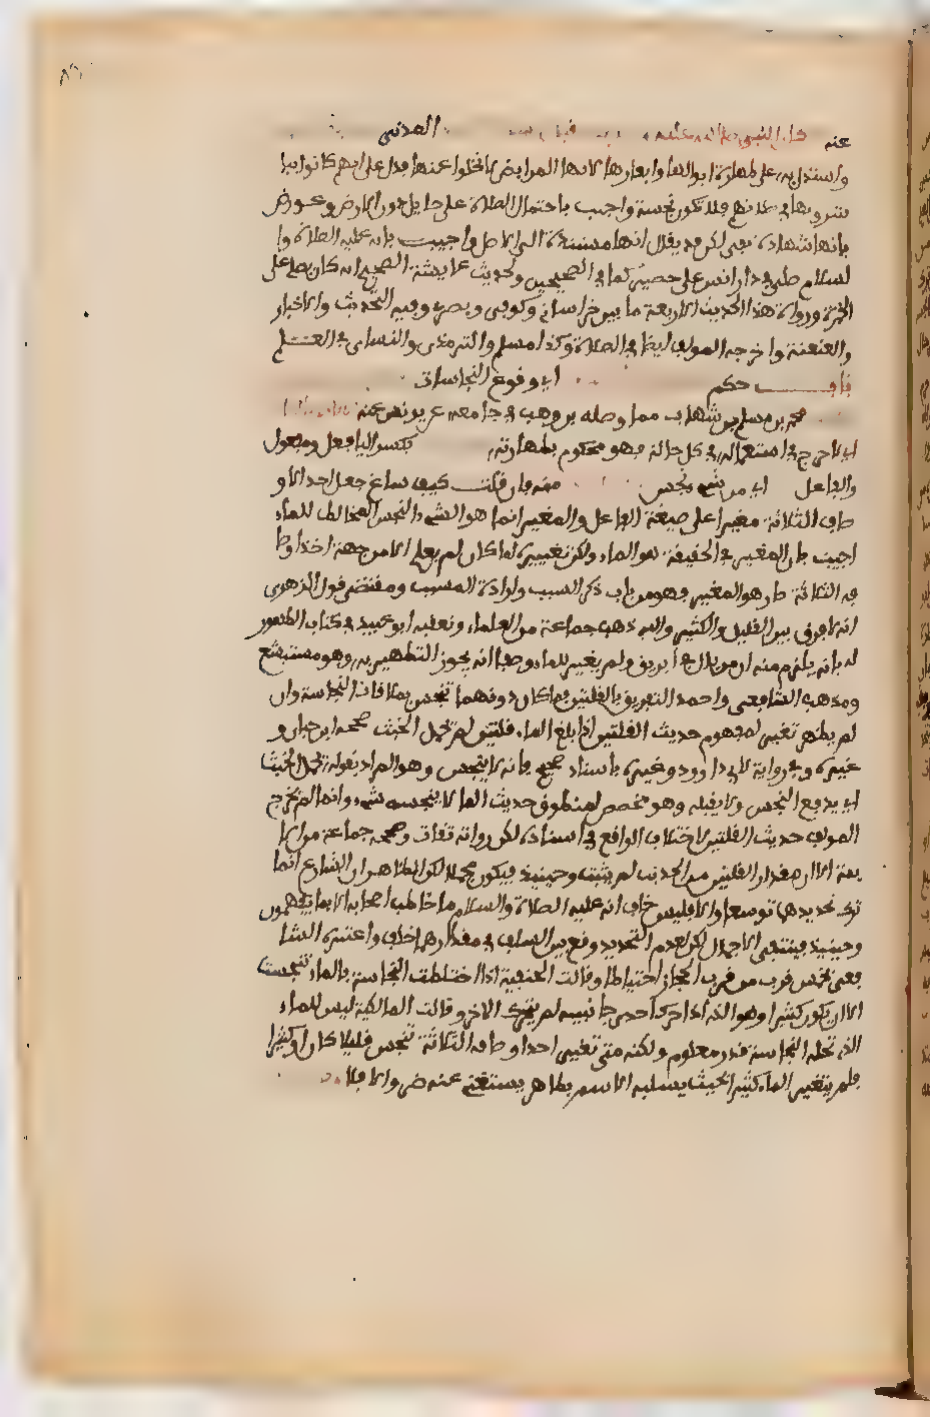 عنه كان النبي صلى الله عليه قبل المدني
واستدل به على طهارة ابوالها وابعارها لان المرابض لا تخلوا عنها فدل على انهم كانوا يبا
شرونها في صلاتهم فلا تكون نجسة واجيب باحتمال الصلاة على حايل دون الارض وعورض
بانها شهادة نفي لكن قد يقال انها مستندة الى الاصل واجيب بانه عليه الصلاة وا
لسلام صلى في دار انس على حصير كما في الصحيحين ولحديث عايشة الصحيح انه كان يصلي على
الخمرة ورواة هذا الحديث الاربعة ما بين خراساني وكوفي وبصري وفيه التحديث والاخبار
والعنعنة واخرجه المولف ايضا في الصلاة وكذا مسلم والترمذي والنساي في العلم
باب حكم اي وقوع النجاسات
محمد بن مسلم بن شهاب مما وصله بن وهب في جامعه عن يونس عنه
اي لا حرج في استعماله في كل حالة فهو محكوم بطهارته بكسر اليا فعل ومفعول
والفاعل اي من شيء نجس منه فان قلت كيف ساغ جعل احد الاو
صاف الثلاثة مغيرا على صيغة الفاعل والمغير انما هو الشيء النجس المخالط للماء
اجيب بان المغير في الحقيقة هو الماء ولكن تغييره لما كان لم يعلم الا من جهة احد اوصا
فه الثلاثة صار هو المغير فهو من باب ذكر السبب وارادة المسبب ومقتضى قول الزهري
انه لا فرق بين القليل والكثير واليه ذهب جماعة من العلماء وتعقبه ابو عبيد في كتاب الطهور
له بانه يلزم منه ان من بال في ابريق ولم يغير للماء وصفا انه يجوز التطهير به وهو مستبشع
ومذهب الشافعي واحمد التفريق بالقلتين فما كان دونهما تنجس بملاقات النجاسة وان
لم يظهر تغير لمفهوم حديث القلتين اذا بلغ الماء قلتين لم تحمل الخبث صححه ابن حبان و
غيره وفي رواية لابي داوود وغيره باسناد صحيح فانه لا ينجس وهو المراد بقوله لم تحمل الخبث
اي يدفع النجس ولا يقبله وهو مخصص لمنطوق حديث الما لا ينجسه شيء وانما لم يخرج
المولف حديث القلتين لاختلاف الواقع في اسناده لكن رواته ثقات وصححه جماعة من الا
يمة الا ان مقدار القلتين من الحديث لم يثبت وحينيذ فيكون مجملا لكن الظاهر ان الشارع انما
ترك تحديدهما توسعا والا فليس خاف انه عليه الصلاة والسلام ما خاطب اصحابه الا بما يفهمون
وحينيذ فينتفي الاجمال لكن لعدم التحديد وقع بين السلف في مقدارهما خلف واعتبره الشا
فعي بخمس قرب من قرب الحجاز احتياطا وقالت الحنفية اذا اختلطت النجاسة بالماء تنجست
الا ان يكون كثيرا وهو الذي اذا حرك احدى جانبيه لم يتحرك الاخر وقالت المالكية ليس للماء
الذي تحله النجاسة قدر معلوم ولكنه متى تغير احد اوصافه الثلاثة تنجس قليلا كان او كثيرا
فلم يتغير الماء كثيرا بحيث يسلبه الاسم بطاهر يستغني عنه ضر والا فلا